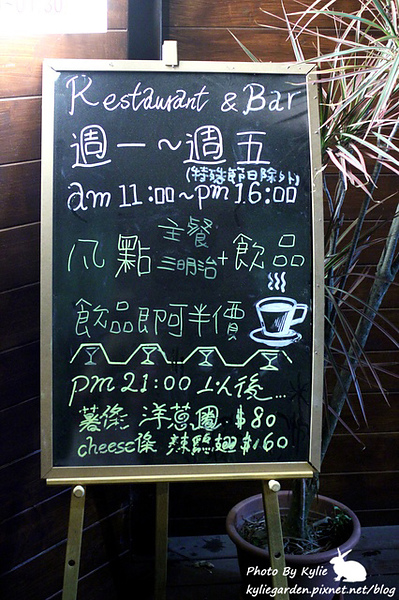 Restaurant & Bar
週一~週五
(特殊節日除外)
am 11:00~pm 16:00
凡點 主餐 三明治 + 飲品
飲品即可半價
pm 21:00 以後...
薯條 洋蔥圈 $80
cheese條 辣雞翅 $160
Photo By Kylie
kyliegarden.pixnet.net/blog